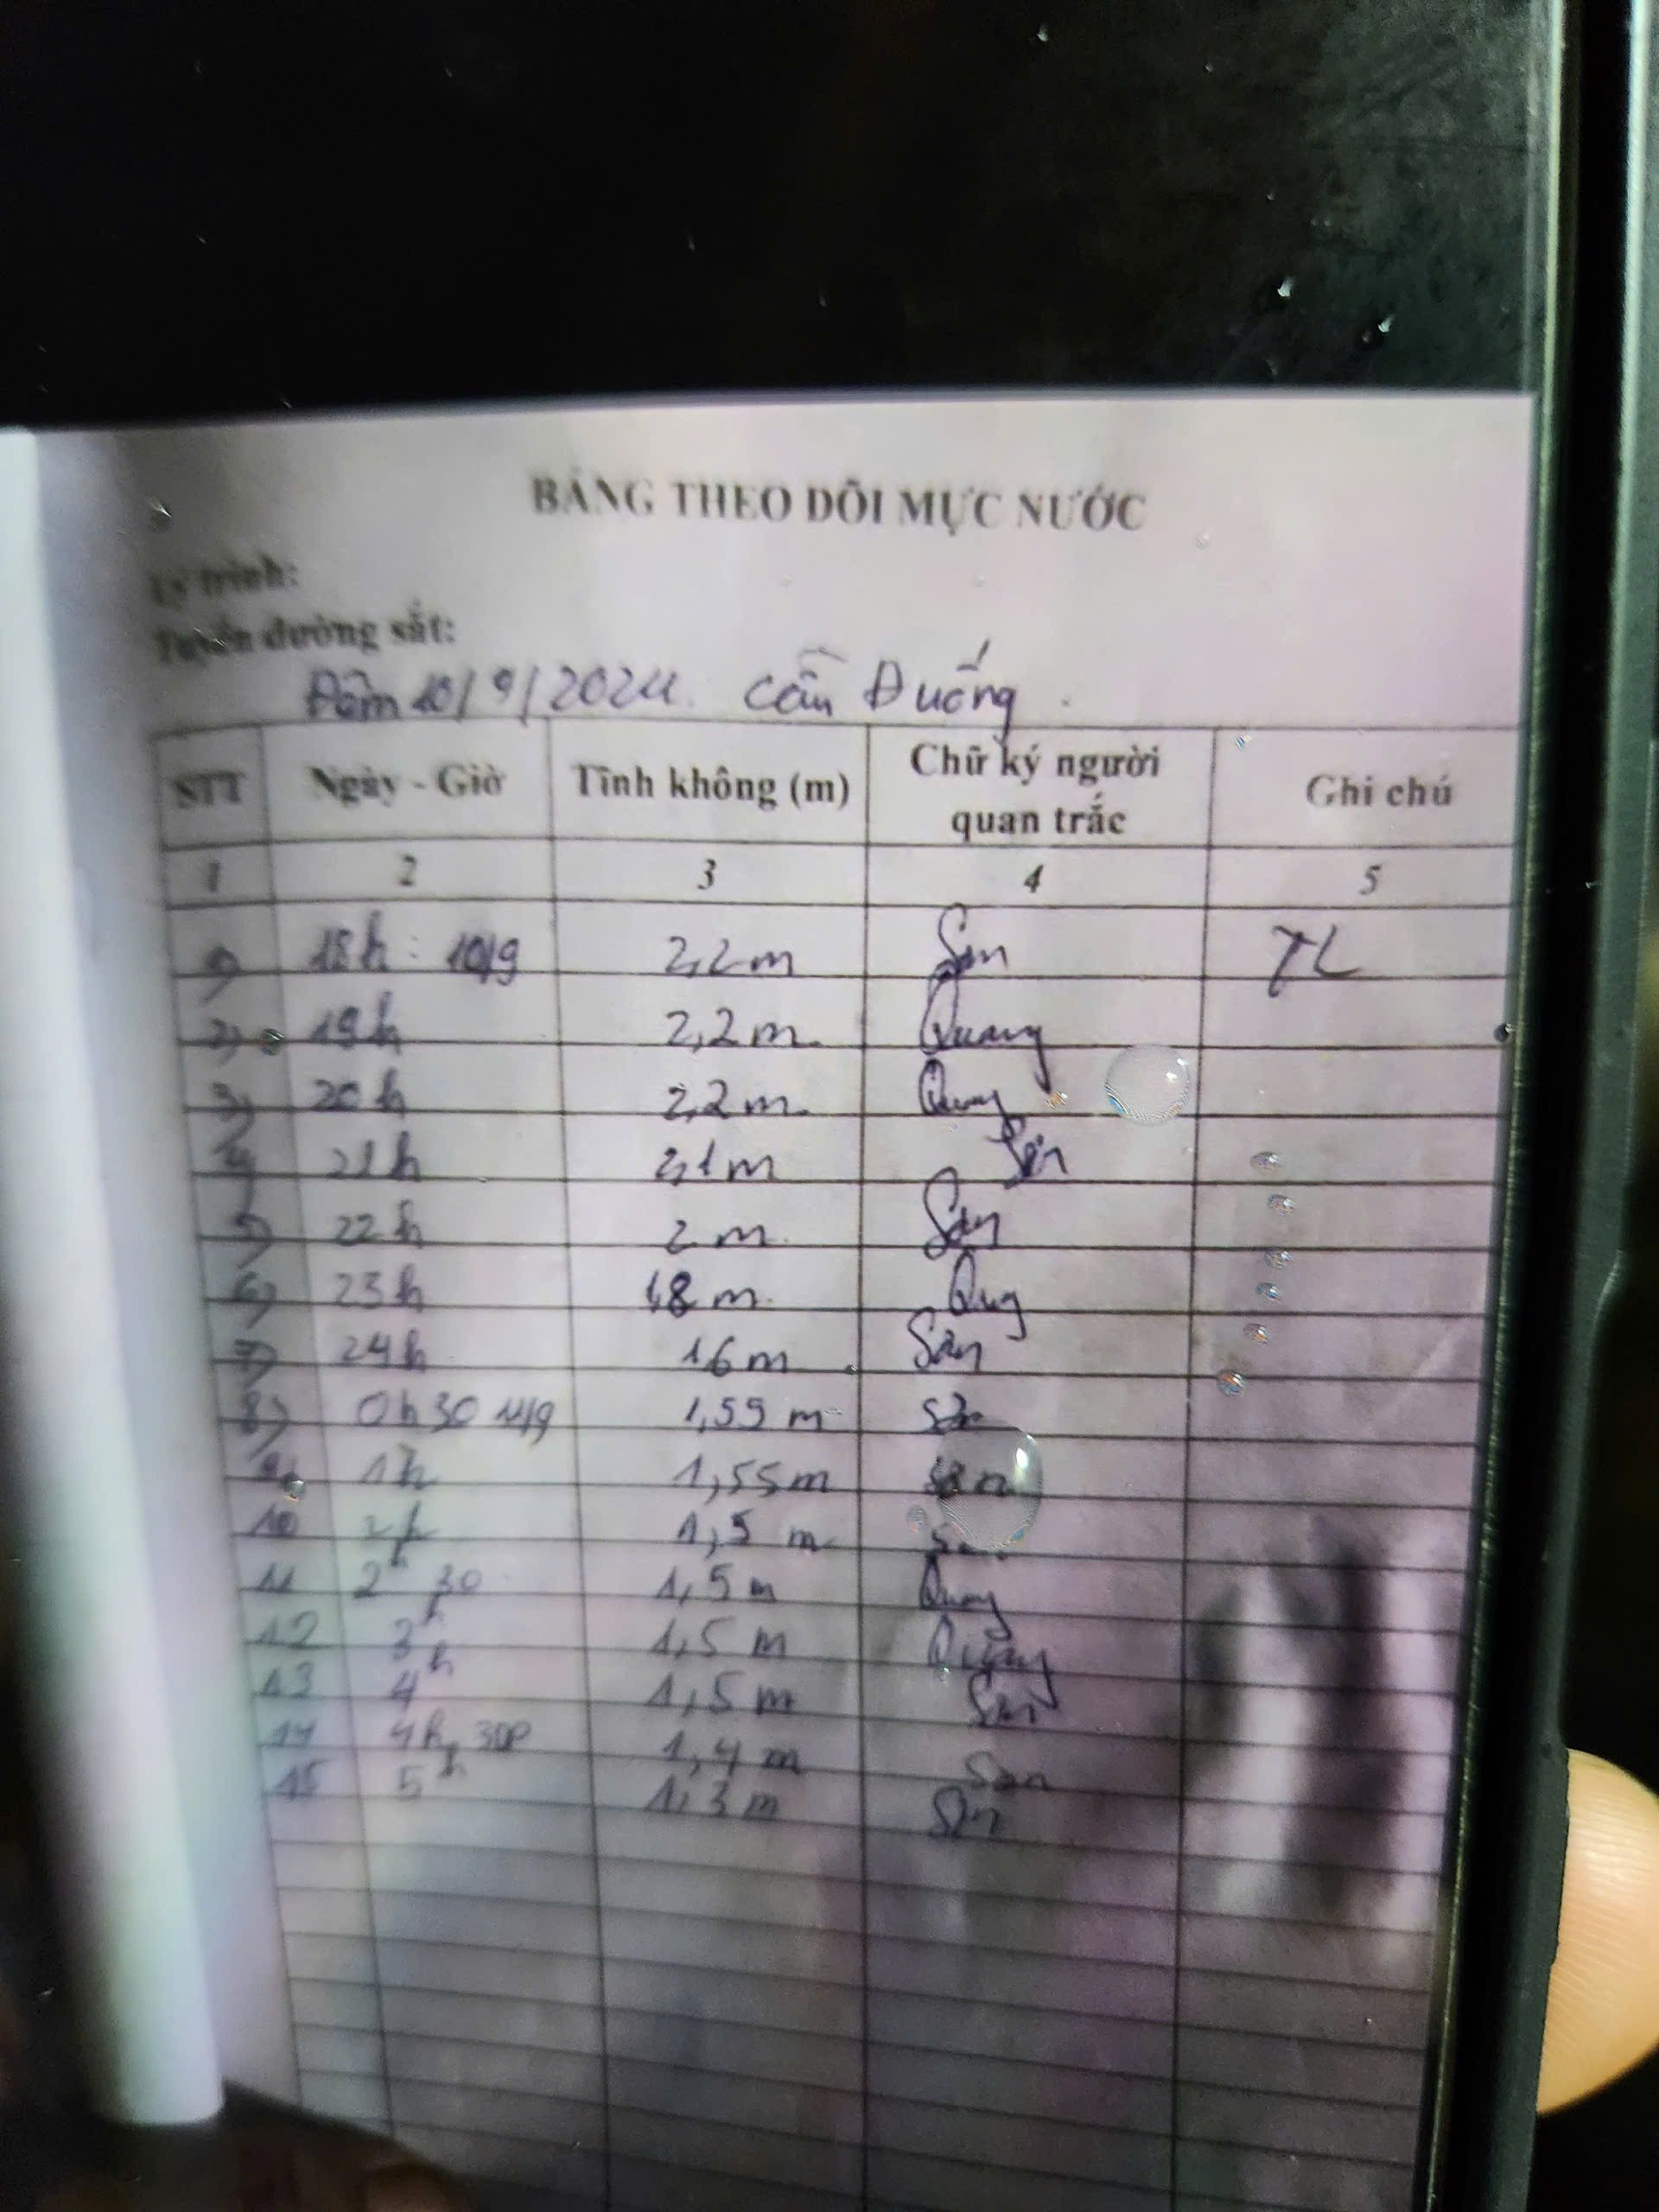 BẢNG THEO DÕI MỰC NƯỚC
Lý trình:
Tuyến đường sắt:
Đêm 10/9/2024. Cầu Đuống.
STT Ngày - Giờ Tĩnh không (m) Chữ ký người quan trắc Ghi chú
1 2 3 4 5
1) 18h : 10/9 2,2m Sơn TL
2) 19h 2,2m. Quang
3) 20h 2,2m. Quang
4) 21h 2,1m Sơn
5) 22h 2m. Sơn
6) 23h 1,8m. Quang
7) 24h 1,6m Sơn
8) 0h30 11/9 m Sơn
9) 1h 1,55m Sơn
10 2h 1,5 m
11 2h 30 1,5m Quang
12 3h 1,5 m Quang
13 4h 1,5 m Sơn
14 4h 30p 1,4 m Sơn
15 5h 1,3 m Sơn